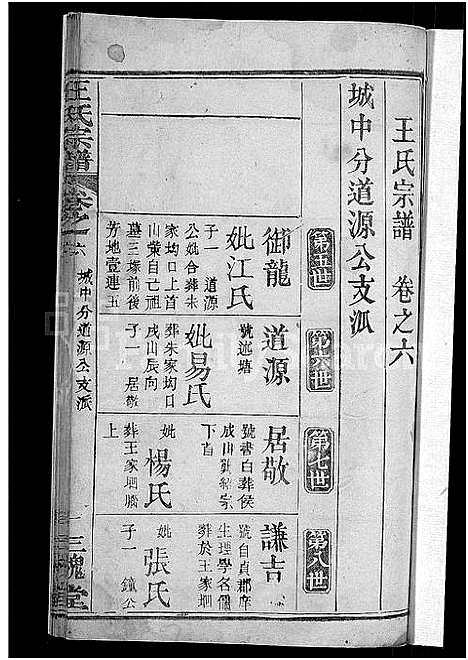 王氏宗譜 卷之六
城中分道源公支派
第五世
第六世
第七世
第八世
御龍
妣江氏
子一 道源
公妣合葬朱
家坳口上首
山業自己祖
墓三塚前後
芳地壹連五
道源
號述塘
妣易氏
葬朱家坳口
戌山辰向
子一 居敬
居敬
號書白葬侯
戌山
下首
妣
楊氏
葬王家垇
上
謙吉
號自貞郡庠
生理學名儒
葬於王家垇
妣
張氏
子一 鐘公
王氏宗譜
卷之六
城中分道源公支派
一
三槐堂